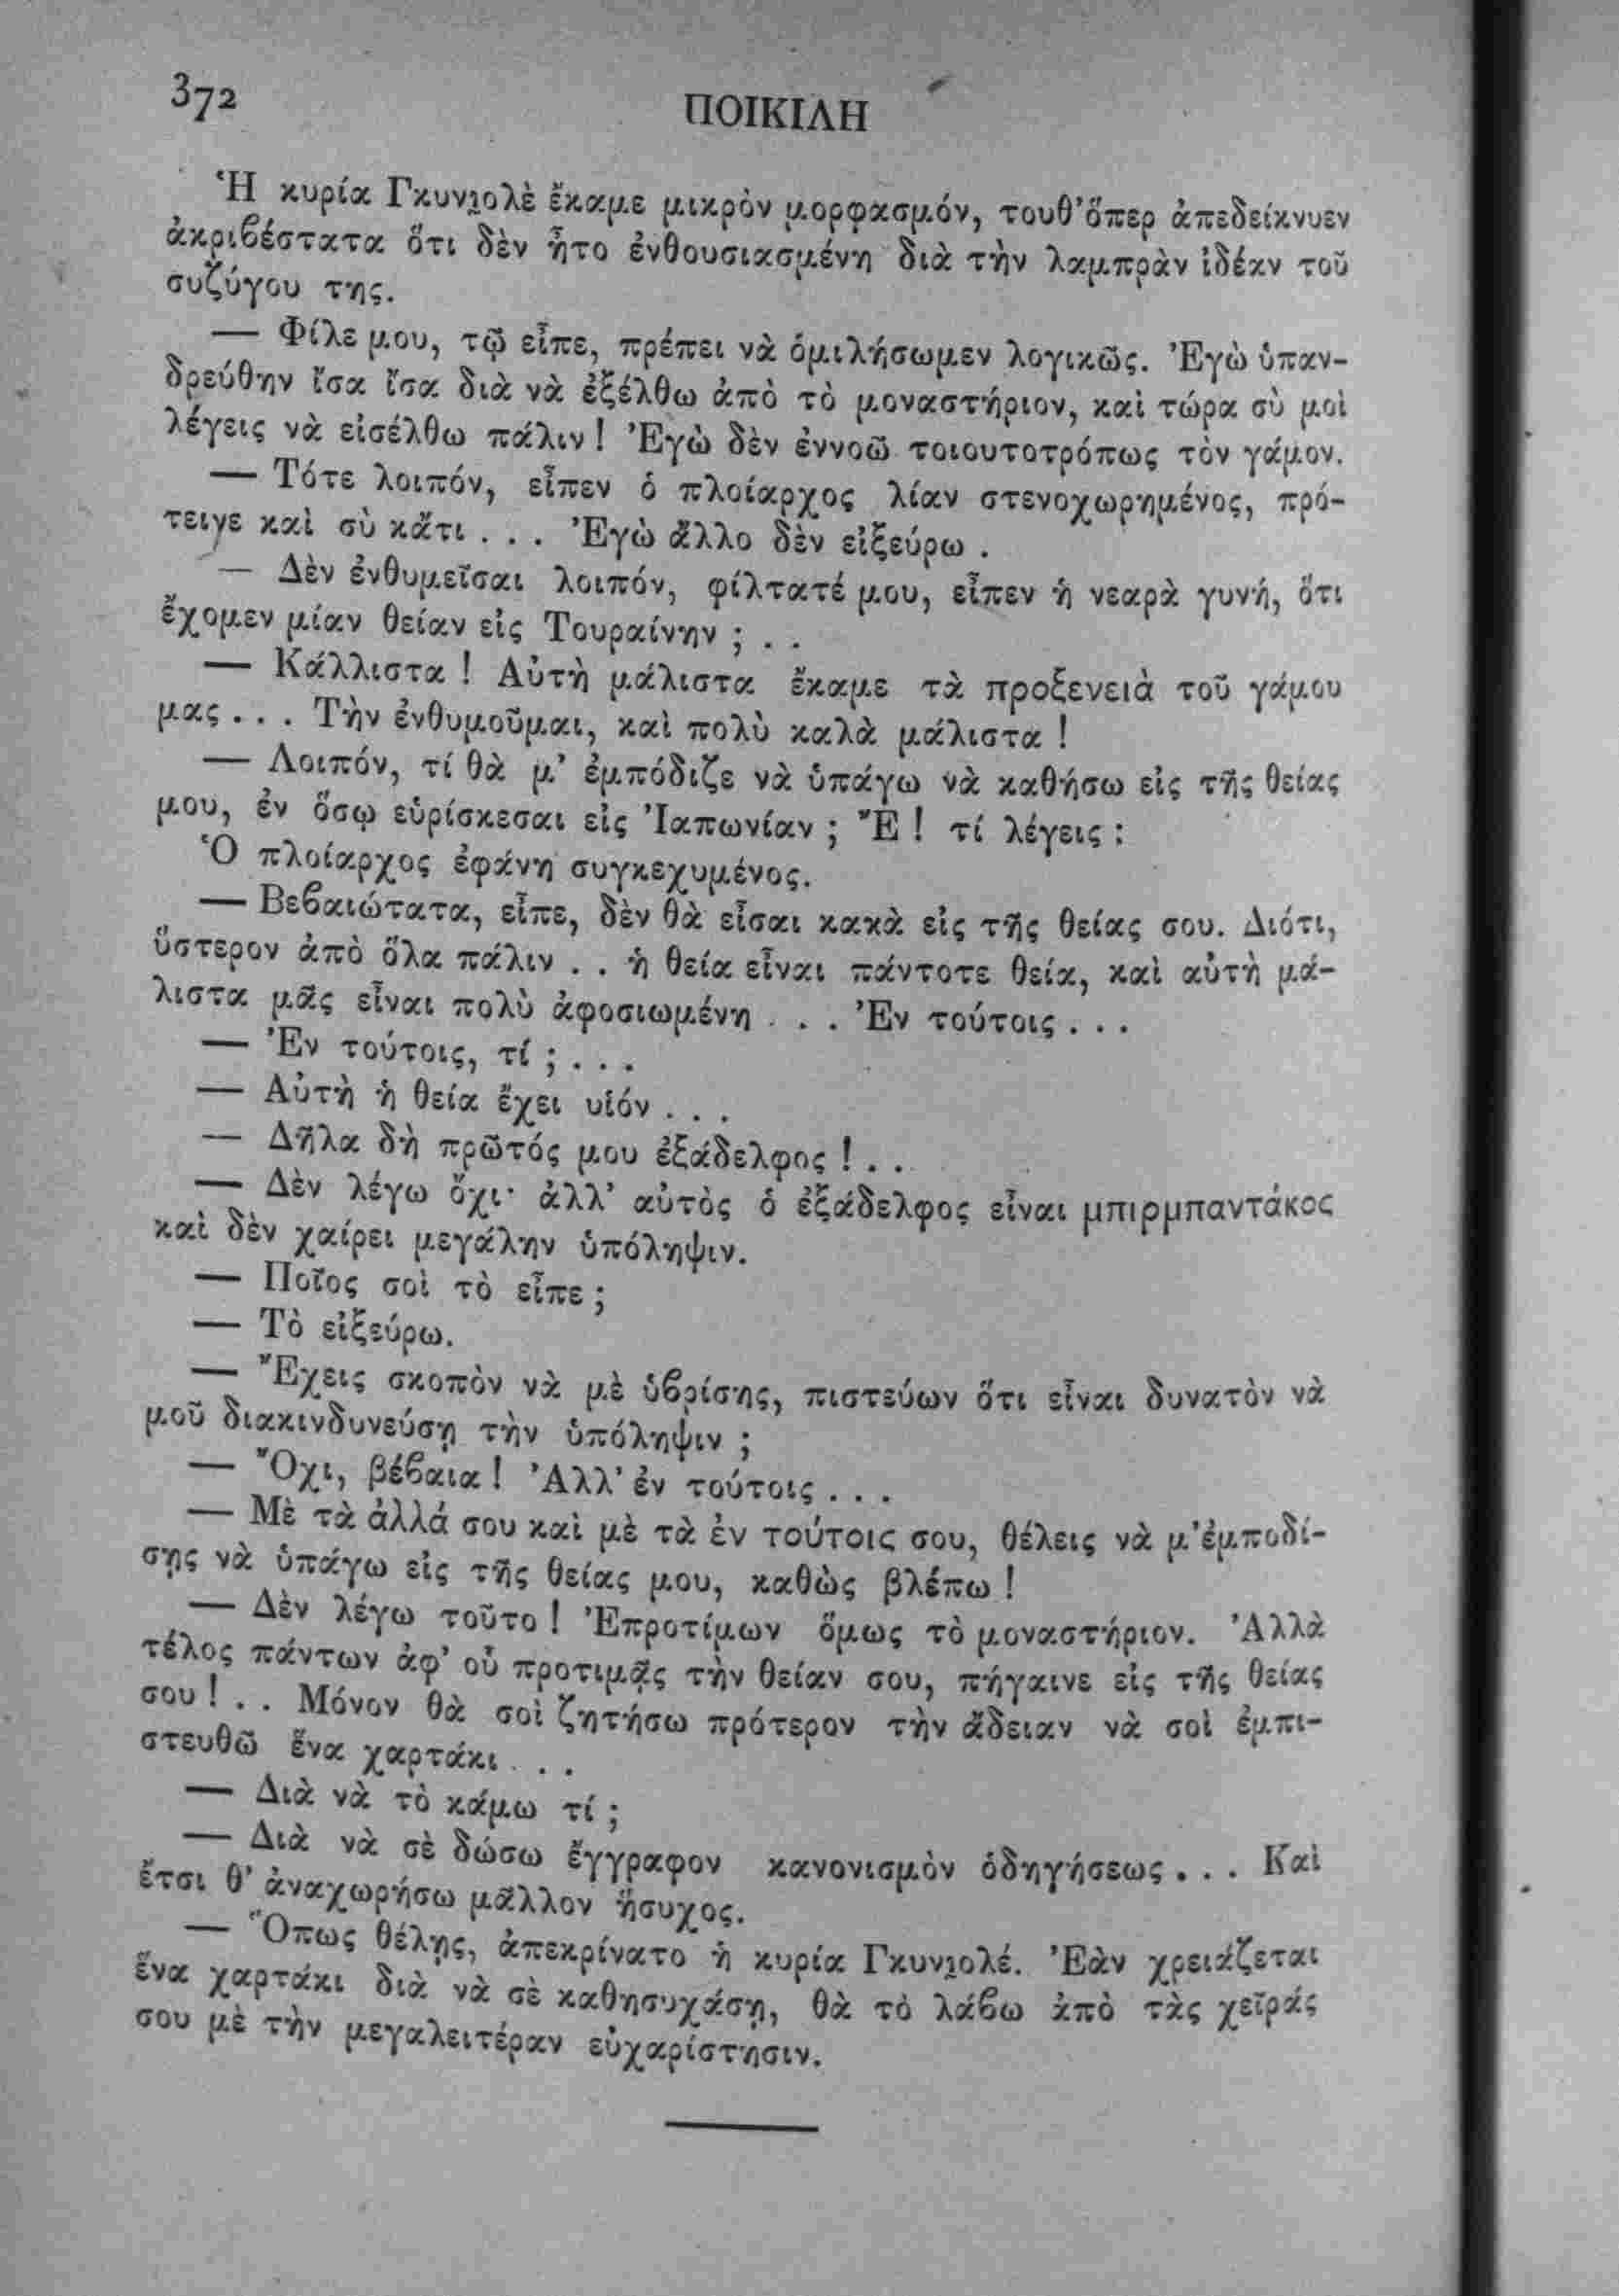 372
ΠΟΙΚΙΛΗ
Ἡ κυρία Γκυνι̯ολὲ ἔκαμε μικρὸν μορφασμόν, τουθ’ὅπερ ἀπεδείκνυεν
ἀκριβέστατα ὅτι δὲν ἦτο ἐνθουσιασμένη διὰ τὴν λαμπρὰν ἰδέαν τοῦ
συζύγου της.
— Φίλε μου, τῷ εἶπε, πρέπει νὰ ὁμιλήσωμεν λογικῶς. Ἐγὼ ὑπαν-
δρεύθην ἴσα ἴσα διὰ νὰ ἐξέλθω ἀπὸ τὸ μοναστήριον, καὶ τώρα σὺ μοὶ
λέγεις νὰ εἰσέλθω πάλιν! Ἐγὼ δὲν ἐννοῶ τοιουτοτρόπως τὸν γάμον.
— Τότε λοιπόν, εἶπεν ὁ πλοίαρχος λίαν στενοχωρημένος, πρό-
τεινε καὶ σὺ κἄτι . . . Ἐγὼ ἄλλο δὲν εἰξεύρω .
— Δὲν ἐνθυμεῖσαι λοιπόν, φίλτατέ μου, εἶπεν ἡ νεαρὰ γυνή, ὅτι
ἔχομεν μίαν θείαν εἰς Τουραίνην ; . .
— Κάλλιστα ! Αὐτὴ μάλιστα ἔκαμε τὰ προξενειὰ τοῦ γάμου
μας . . . Τὴν ἐνθυμοῦμαι, καὶ πολὺ καλὰ μάλιστα !
— Λοιπόν, τί θὰ μ’ ἐμπόδιζε νὰ ὑπάγω νὰ καθήσω εἰς τῆς θείας
μου, ἐν ὅσῳ εὑρίσκεσαι εἰς Ἰαπωνίαν ; Ἔ ! τί λέγεις ;
Ὁ πλοίαρχος ἐφάνη συγκεχυμένος.
— Βεβαιώτατα, εἶπε, δὲν θὰ εἶσαι κακὰ εἰς τῆς θείας σου. Διότι,
ὕστερον ἀπὸ ὅλα πάλιν . . ἡ θεία εἶναι πάντοτε θεία, καὶ αὐτὴ μά-
λιστα μᾶς εἶναι πολὺ ἀφοσιωμένη . . . Ἐν τούτοις . . .
— Ἐν τούτοις, τί ; . . .
— Αὐτὴ ἡ θεία ἔχει υἱόν . . .
— Δῆλα δὴ πρῶτός μου ἐξάδελφος ! . .
— Δὲν λέγω ὄχι· ἀλλ’ αὐτὸς ὁ ἐξάδελφος εἶναι μπιρμπαντάκος
καὶ δὲν χαίρει μεγάλην ὑπόληψιν.
— Ποῖος σοὶ τὸ εἶπε ;
— Τὸ εἰξεύρω.
— Ἔχεις σκοπὸν νὰ μὲ ὑβρίσῃς, πιστεύων ὅτι εἶναι δυνατὸν νὰ
μοῦ διακινδυνεύσῃ τὴν ὑπόληψιν ;
— Ὄχι, βέβαια! Ἀλλ’ ἐν τούτοις . . .
— Μὲ τὰ ἀλλά σου καὶ μὲ τὰ ἐν τούτοις σου, θέλεις νὰ μ’ἐμποδί-
σῃς νὰ ὑπάγω εἰς τῆς θείας μου, καθὼς βλέπω !
— Δὲν λέγω τοῦτο ! Ἐπροτίμων ὅμως τὸ μοναστήριον. Ἀλλὰ
τέλος πάντων ἀφ’ οὗ προτιμᾷς τὴν θείαν σου, πήγαινε εἰς τῆς θείας
σου ! . . Μόνον θὰ σοὶ ζητήσω πρότερον τὴν ἄδειαν νὰ σοὶ ἐμπι-
στευθῶ ἕνα χαρτάκι . . .
— Διὰ νὰ τὸ κάμω τί ;
— Διὰ νὰ σὲ δώσω ἔγγραφον κανονισμὸν ὁδηγήσεως . . . Καὶ
ἔτσι θ’ ἀναχωρήσω μᾶλλον ἥσυχος.
— Ὅπως θέλῃς, ἀπεκρίνατο ἡ κυρία Γκυνι̯ολέ. Ἐὰν χρειάζεται
ἕνα χαρτάκι διὰ νὰ σὲ καθησυχάσῃ, θὰ τὸ λάβω ἀπὸ τὰς χεῖράς
σου μὲ τὴν μεγαλειτέραν εὐχαρίστησιν.